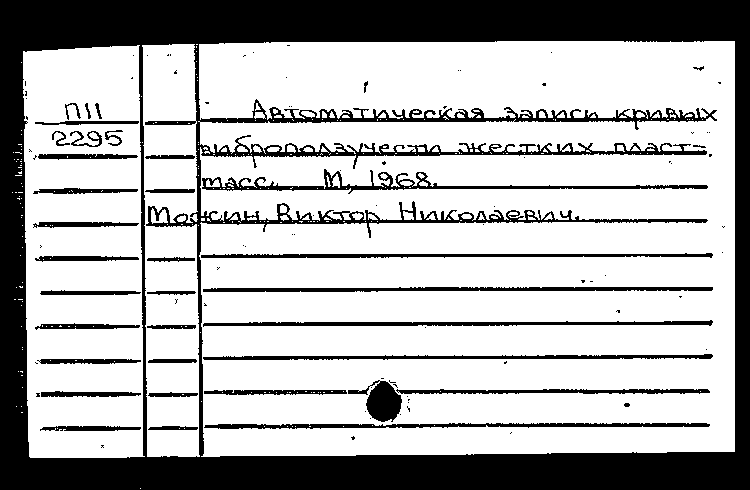 П11 Автоматическая записи кривых
2295 виброползучести жестких пласт-
масс. М., 1968.
Можин, Виктор Николаевич.